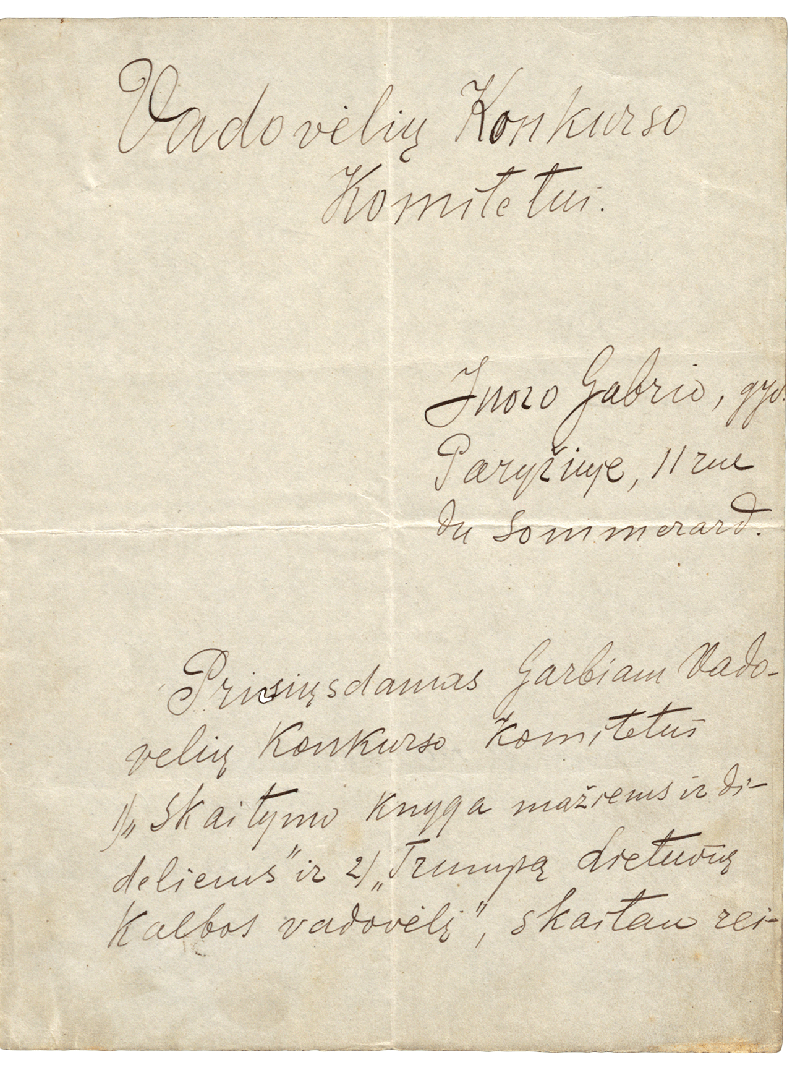 Vadovėlių Konkurso
Komitetui.
Juozo Gabrio, gyv.
Paryžiuje, 11 rue
du Sommerard.
Prisiųsdamas Garbiam Vado-
vėlių Konkurso Komitetui
1) „Skaitymo knyga mažiems ir di-
deliems" ir 2) „Trumpą Lietuvių
Kalbos vadovėlį", skaitau rei-